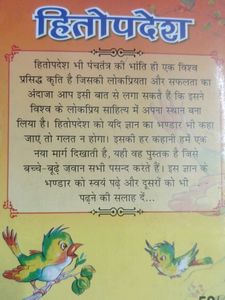 हितोपदेश
हितोपदेश भी पंचतंत्र की भांति ही एक विश्व
प्रसिद्ध कृति है जिसकी लोकप्रियता और सफलता का
अंदाजा आप इसी बात से लगा सकते हैं कि इसने
विश्व के लोकप्रिय साहित्य में अपना स्थान बना
लिया है। हितोपदेश को यदि ज्ञान का भण्डार भी कहा
जाए तो गलत न होगा। इसकी हर कहानी हमें एक
नया मार्ग दिखाती है, यही वह पुस्तक है जिसे
बच्चे-बूढ़े जवान सभी पसन्द करते हैं। इस ज्ञान के
भण्डार को स्वयं पढ़े और दूसरों को भी
पढ़ने की सलाह दें...